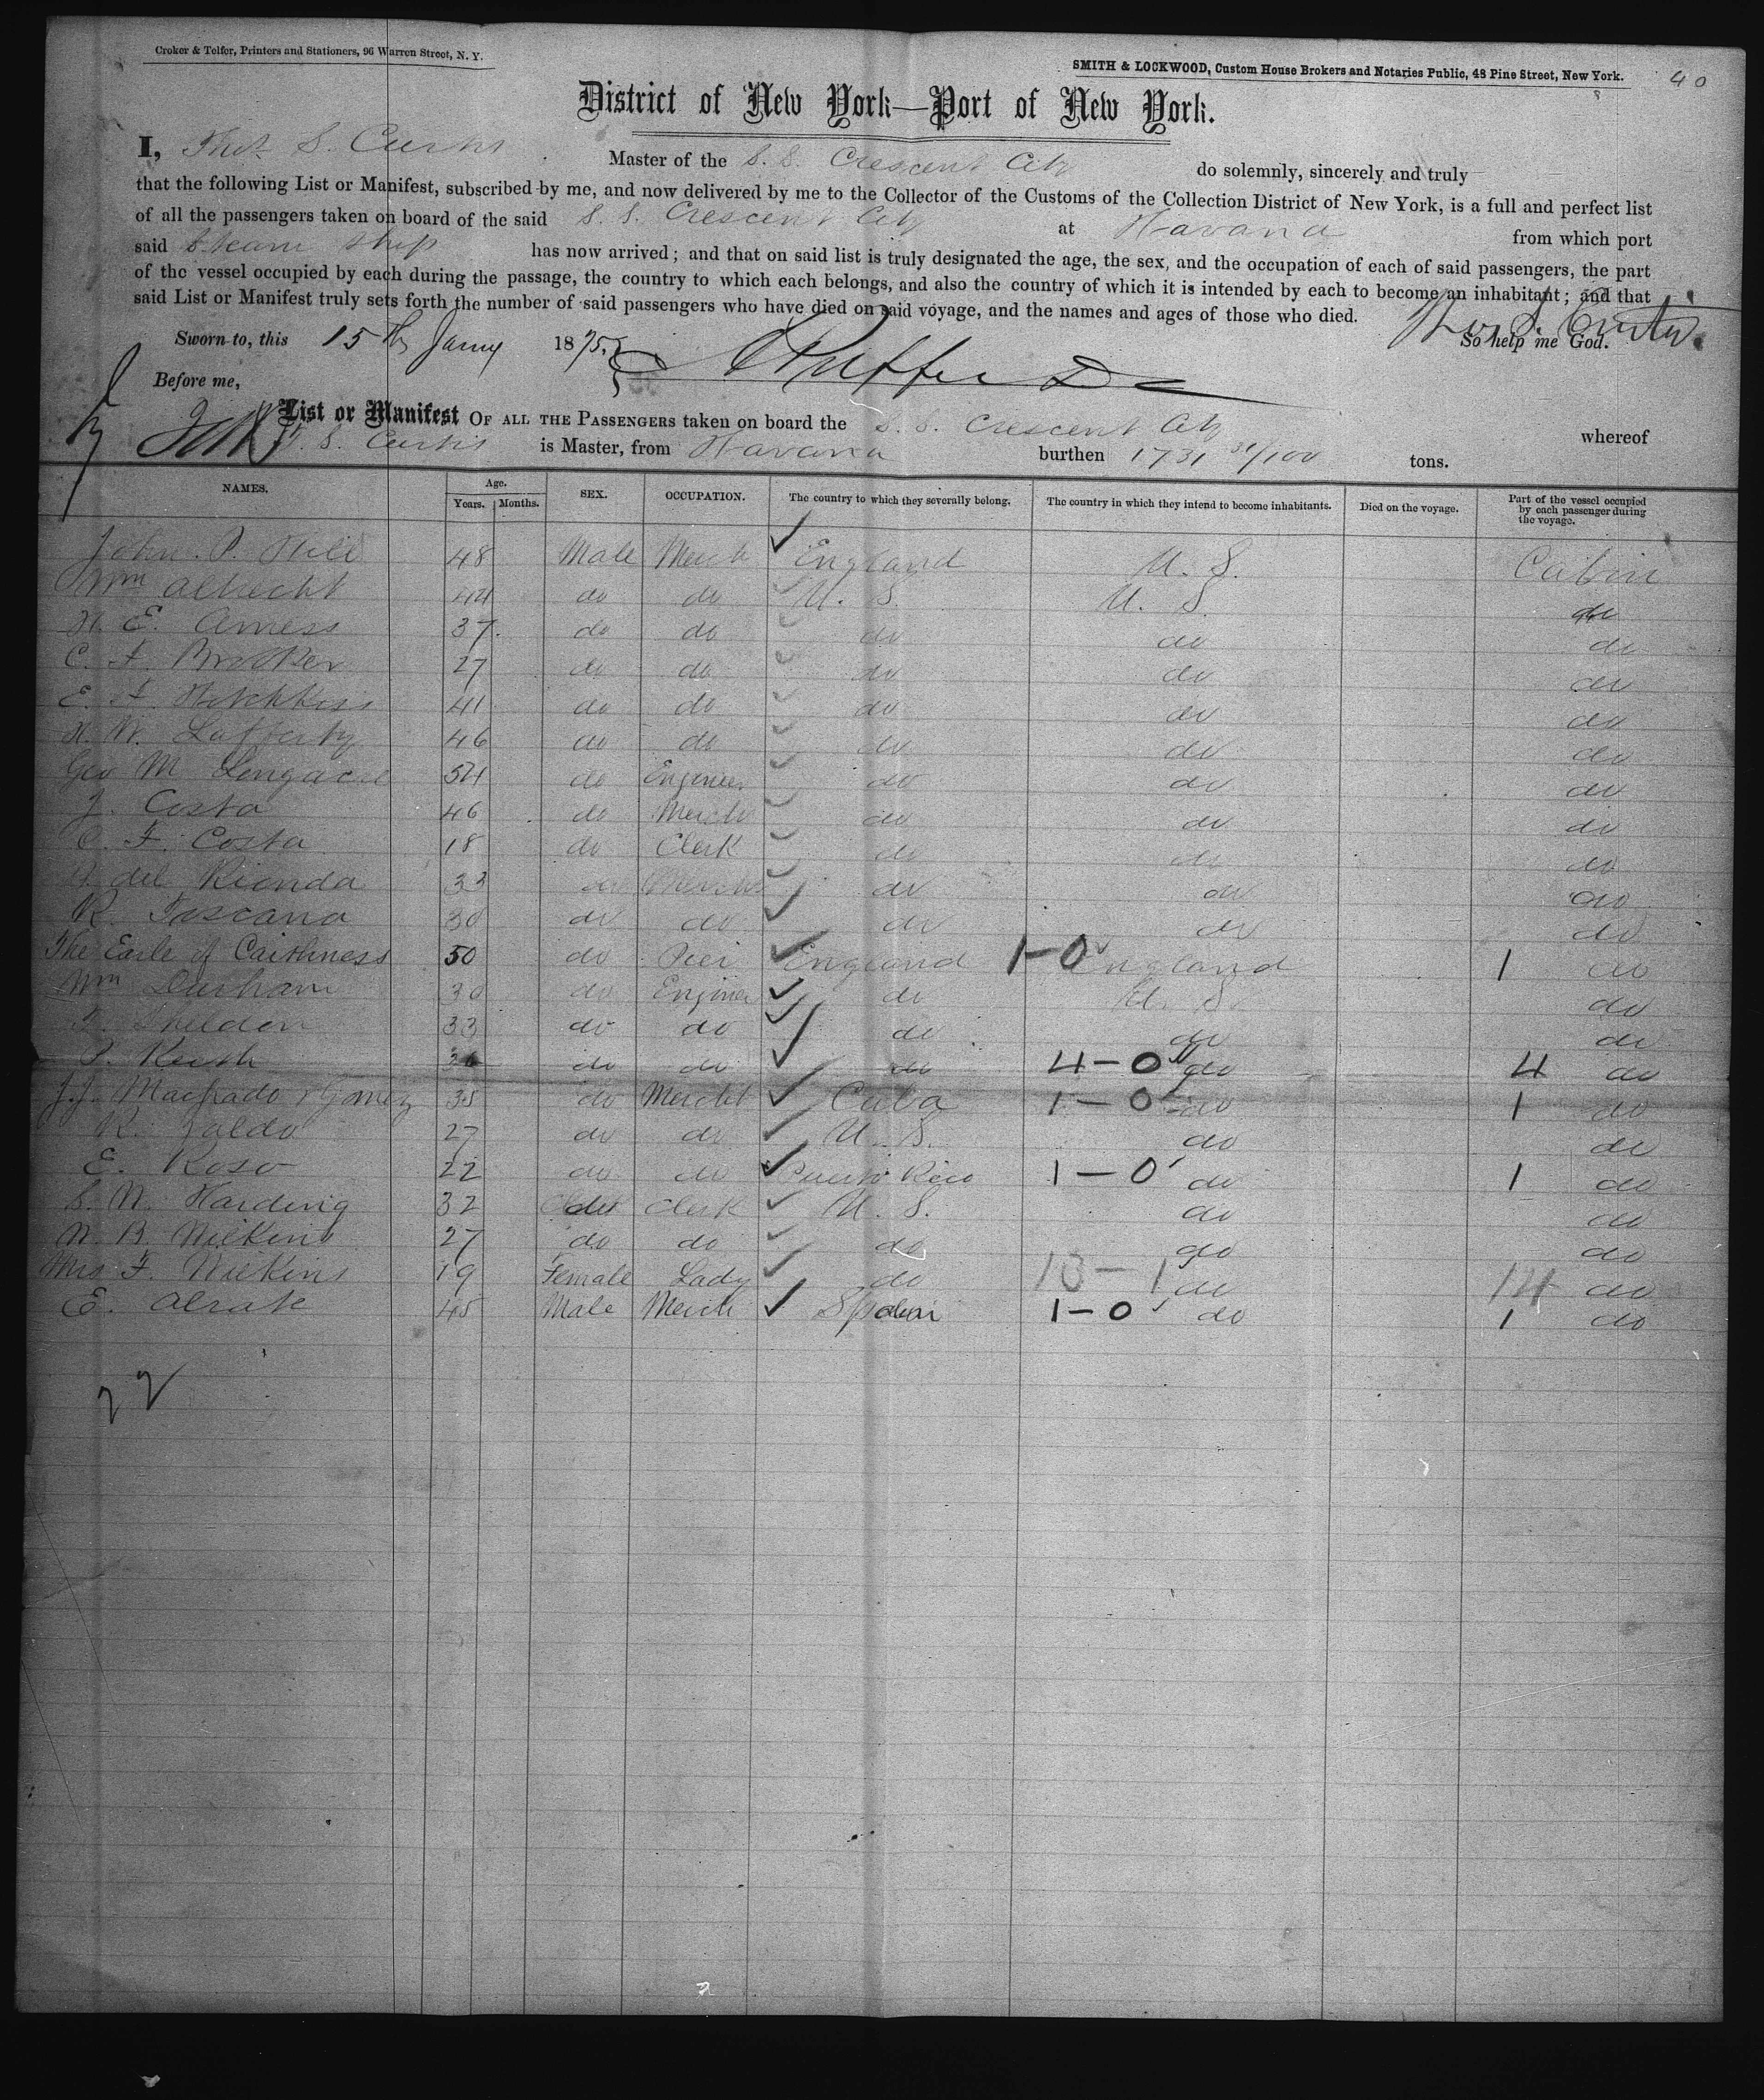 Croker & Telfer, Printers and Stationers, 96 Warren Street, N. Y.
SMITH & LOCKWOOD, Custom House Brokers and Notaries Public, 48 Pine Street, New York. 40
District of New York—Port of New York.
I, Thos S. Curtis Master of the S. S. Crescent City do solemnly, sincerely and truly
that the following List or Manifest, subscribed by me, and now delivered by me to the Collector of the Customs of the Collection District of New York, is a full and perfect list
of all the passengers taken on board of the said S. S. Crescent City at Havana from which port
said Steam Ship has now arrived; and that on said list is truly designated the age, the sex, and the occupation of each of said passengers, the part
of the vessel occupied by each during the passage, the country to which each belongs, and also the country of which it is intended by each to become an inhabitant; and that
said List or Manifest truly sets forth the number of said passengers who have died on said voyage, and the names and ages of those who died.
Sworn to, this 15th Jany 1875 So help me God. Thos S. Curtis
Before me,
List or Manifest OF ALL THE PASSENGERS taken on board the S. S. Crescent City whereof
T. S. Curtis is Master, from Havana burthen 1731 31/100 tons.
NAMES. Age. Years. Months. SEX. OCCUPATION. The country to which they severally belong. The country in which they intend to become inhabitants. Died on the voyage. Part of the vessel occupied by each passenger during the voyage.
John P. Hill 48 Male Merch England U. S. Cabin
Wm Albrecht 44 do do U. S. U. S. do
H. E. Amess 37 do do do do do
C. F. Brooker 27 do do do do do
E. F. Hotchkiss 41 do do do do do
H. W. Lafferty 46 do do do do do
Geo M Longacre 54 do Engineer do do do
J. Costa 46 do Merch do do do
C. F. Costa 18 do Clerk do do do
del Rionda 33 do Merch do do do
R. Toscano 30 do do do do do
The Earle of Caithness 50 do Peer England 1-0 England 1 do
Wm Durham 30 do Engineer do U. S. do
F. Sheldon 33 do do do do do
P. Keith do do do 4-0 do 4 do
J. J. Machado y Gomez 35 do Mercht Cuba 1-0 do 1 do
R. Zaldo 27 do do U. S. do do
E. Roso 22 do do Puerto Rico 1-0 do 1 do
S. N. Harding 32 do Clerk U. S. do do
W. B. Wilkins 27 do do do do do
Mrs F. Wilkins 19 Female Lady do 13-1 do 14 do
E. Alrate 45 Male Merch Spain 1-0 do 1 do
22